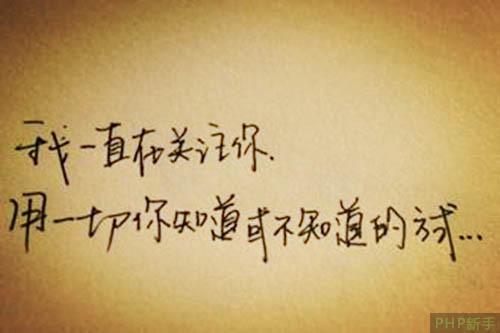 我一直在关注你.
用一切你知道或不知道的方式...
PHP新手